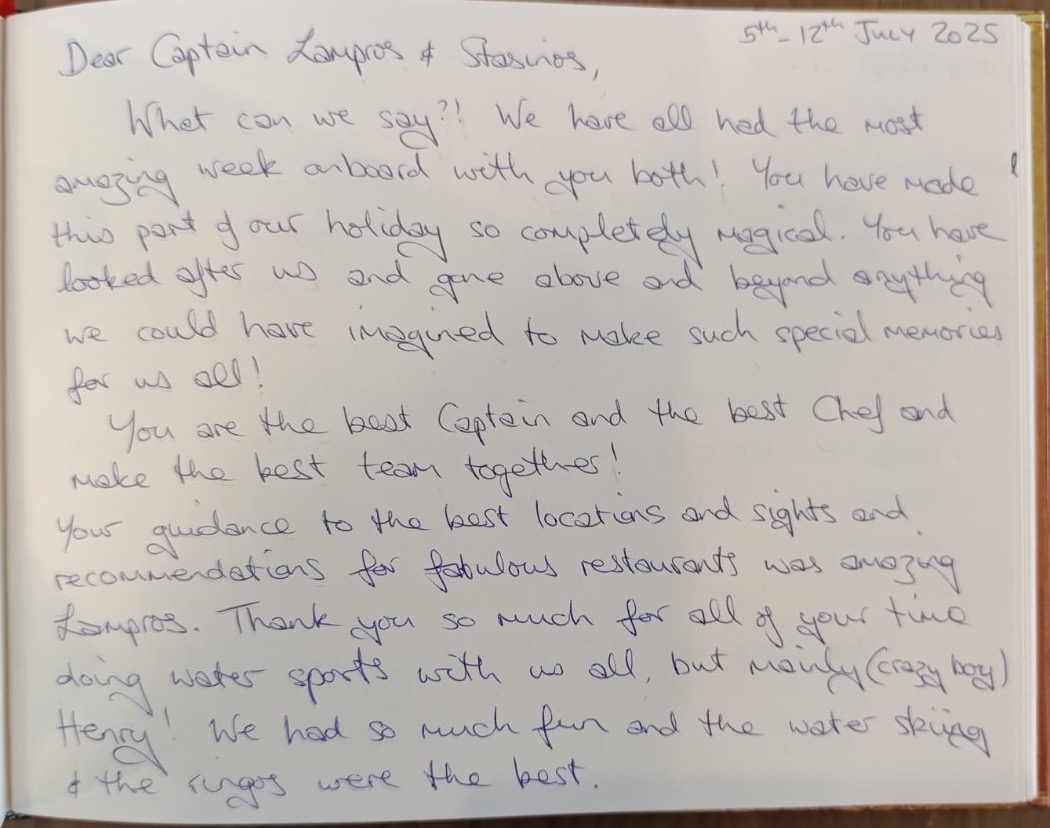 5th - 12th July 2025
Dear Captain Lampros & Stasinos,
What can we say?! We have all had the most
amazing week onboard with you both! You have made
this part of our holiday so completely magical. You have
looked after us and gone above and beyond anything
we could have imagined to make such special memories
for us all!
You are the best Captain and the best Chef and
make the best team together!
Your guidance to the best locations and sights and
recommendations for fabulous restaurants was amazing
Lampros. Thank you so much for all of your time
doing water sports with us all, but mainly (crazy boy)
Henry! We had so much fun and the water skiing
& the ringos were the best.